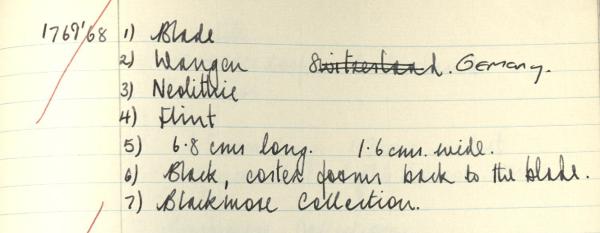 1769'68 1) Blade
2) Wangen Switzerland. Gemany.
3) Neolithic
4) Flint
5) 6.8 cms long. 1.6 cms. wide.
6) Black, cortex forms back to the blade.
7) Blackmore Collection.